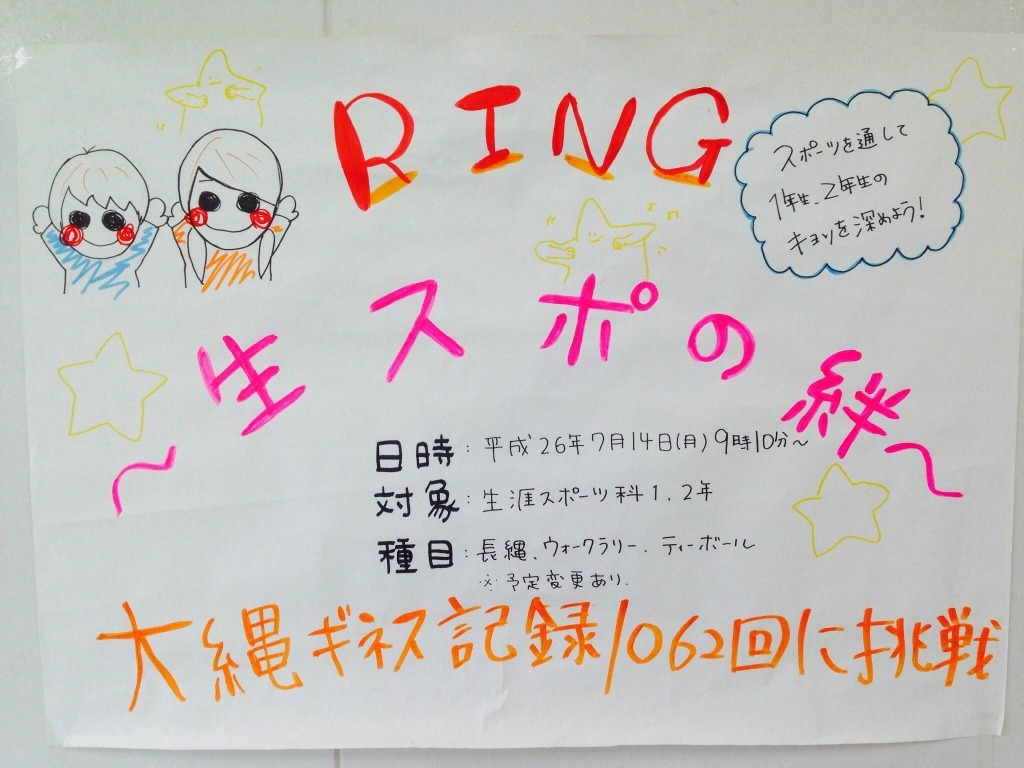 RING
スポーツを通して
1年生、2年生の
キョリを深めよう!
~生スポの絆~
日時:平成26年7月14日(月)9時10分~
対象:生涯スポーツ科1.2年
種目:長縄、ウォークラリー、ティーボール
※予定変更あり.
大縄ギネス記録1062回に挑戦